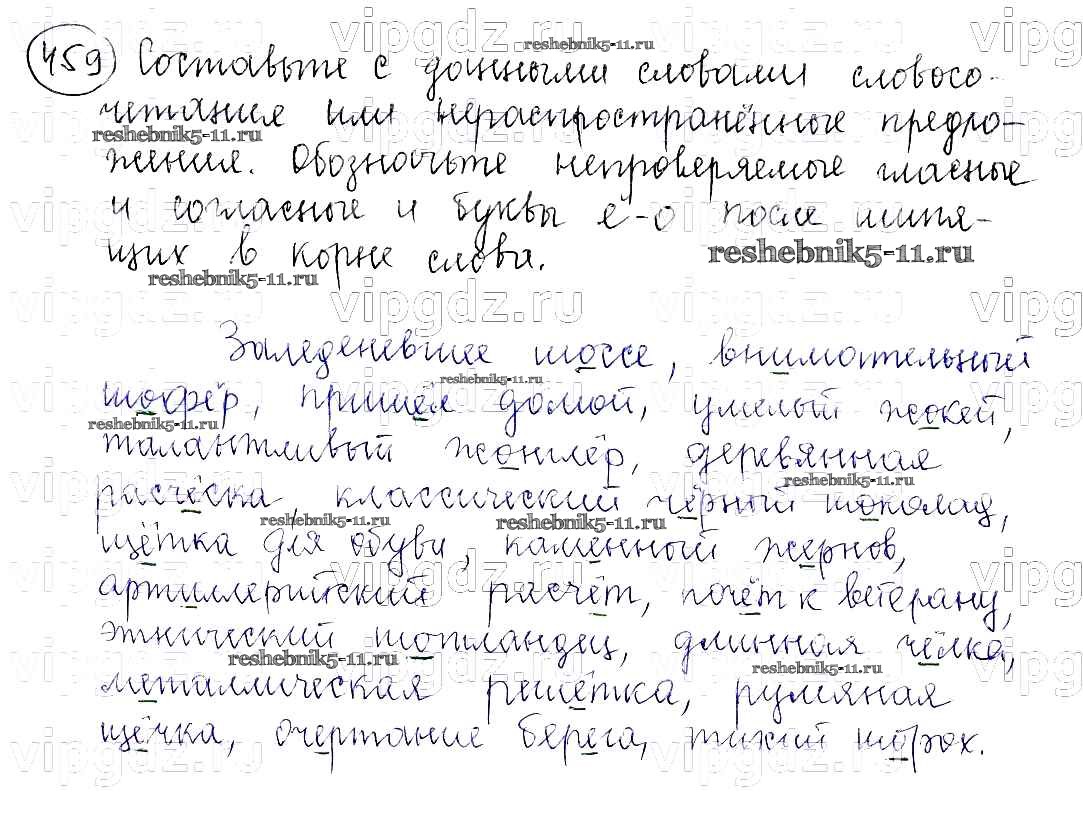 459 Составьте с данными словами словосо-
четания или нераспространённые предло-
жения. Обозначьте непроверяемые гласные
и согласные и буквы ё-о после шипя-
щих в корне слова.
Заледеневшее шоссе, внимательный
шофёр, пришёл домой, умелый жокей,
талантливый жонглёр, деревянная
расчёска, классический чёрный шоколад,
щётка для обуви, каменный жернов,
артиллерийский расчёт, почёт к ветерану,
этнический шотландец, длинная чёлка,
металлическая решётка, румяная
щёчка, очертание берега, тихий шорох.
vipgdz.ru
reshebnik5-11.ru